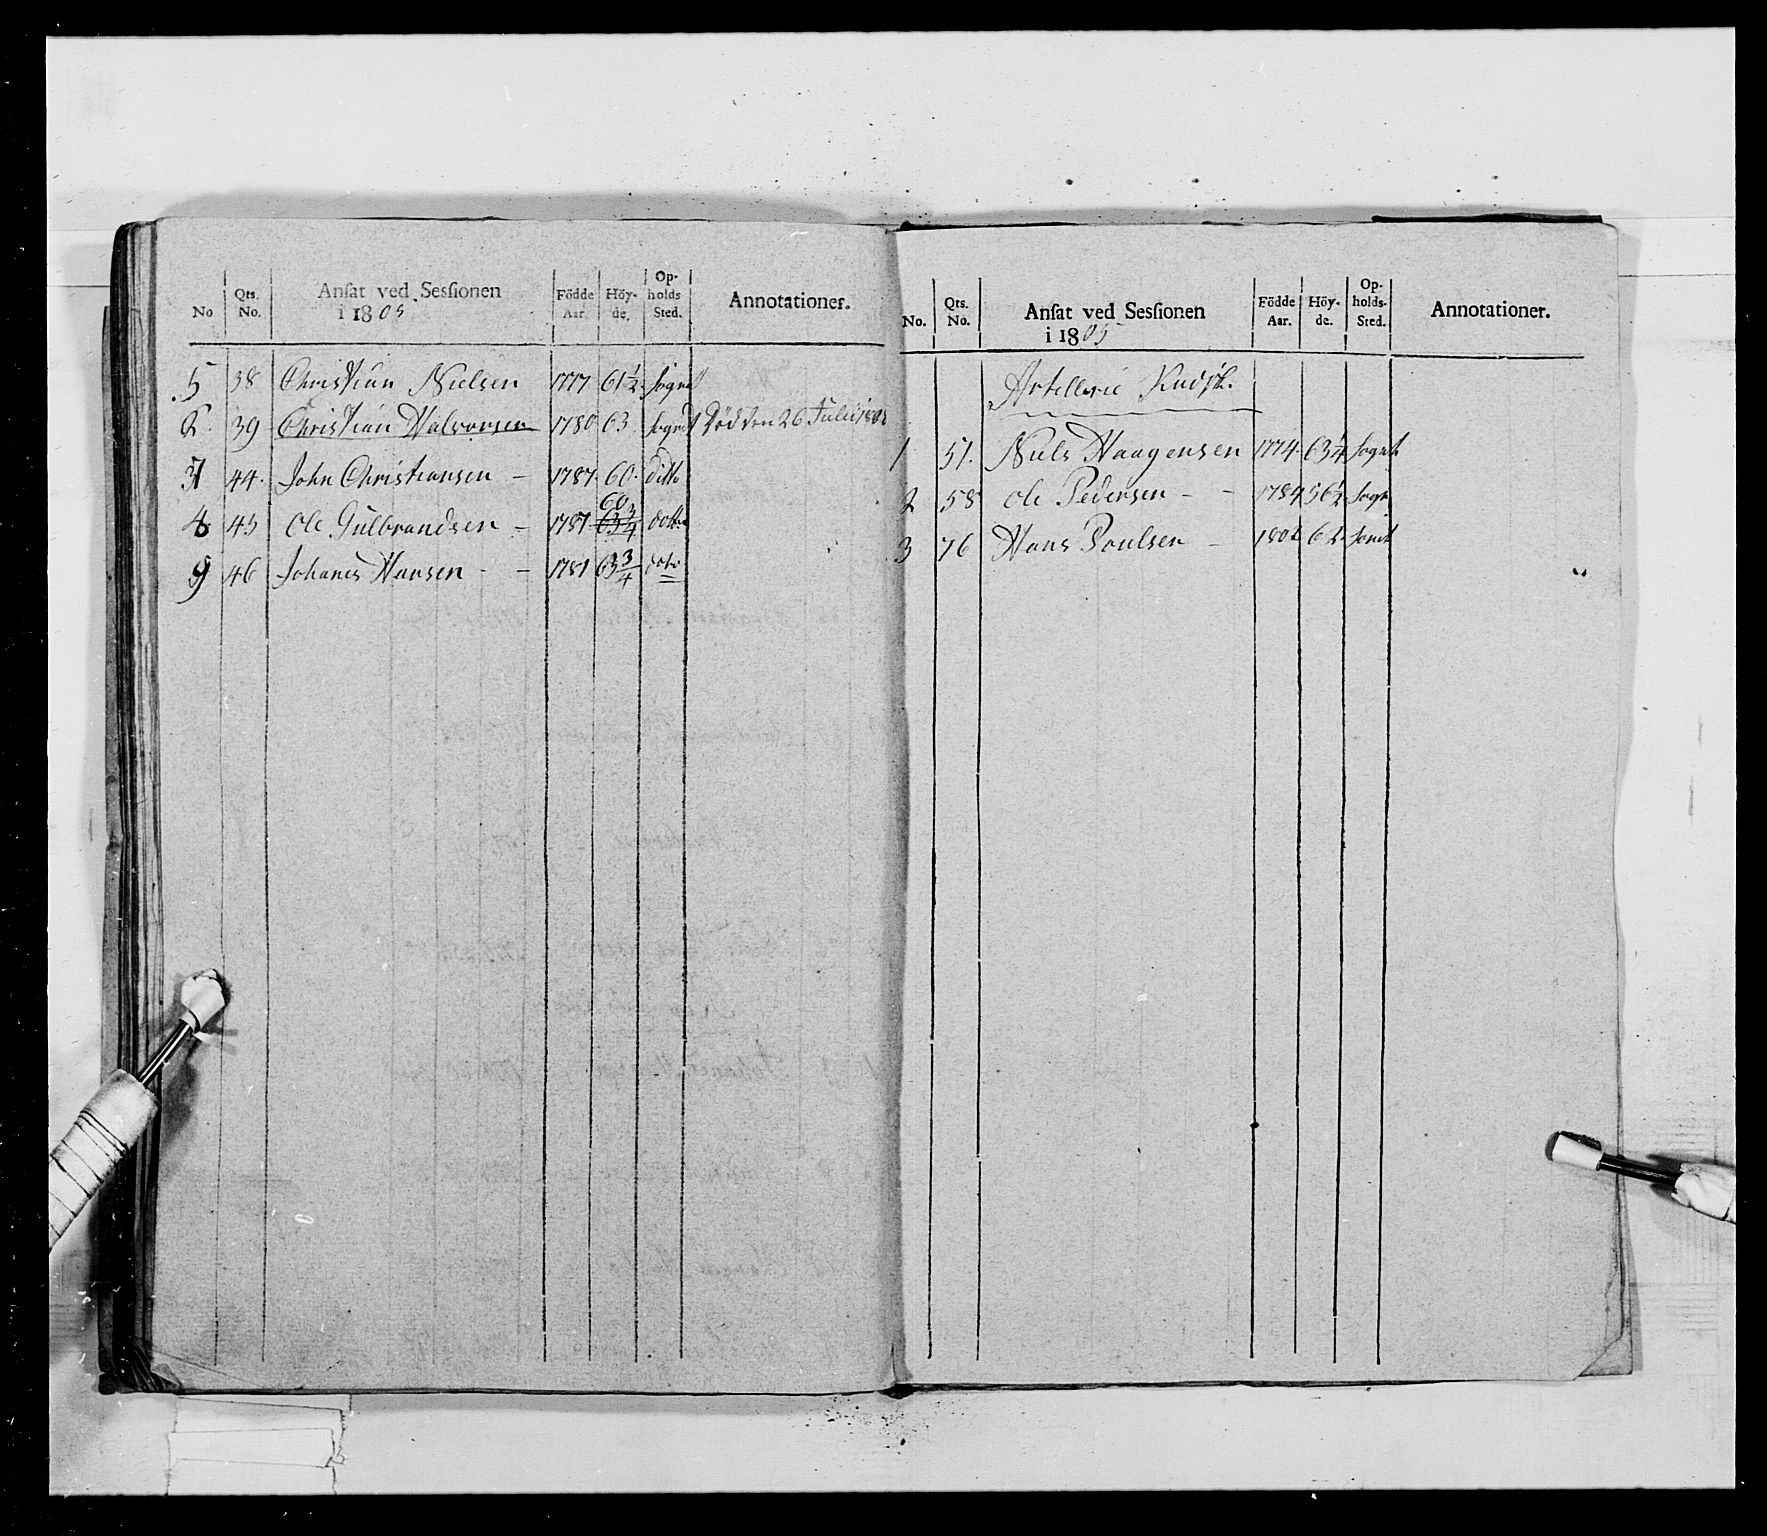 No Qts. No. Ansat ved Sessionen i 1805. Födde Aar. Höyde. Opholds Sted. Annotationer.
5 38 Christian Nielsen 1777 61½ Sognet
2. 39 Christian Halvorsen 1780 63 Sognet Död den 26 Julii
44. John Christiansen – 1787. 60. ditto
45 Ole Gulbrandsen – 1787 60 63¾
9 46 Johanes Hansen - – 1781 63¾
No. Qts. No. Ansat ved Sessionen i 1805 Födde Aar. Höyde. Opholds-Sted. Annotationer.
Artellerie
1 57. Niels Haagensen 1774. 63¼ Sognet
2 58 Ole Pedersen - – 1784 56½ Sogn
3 76 Hans Poulsen – 62